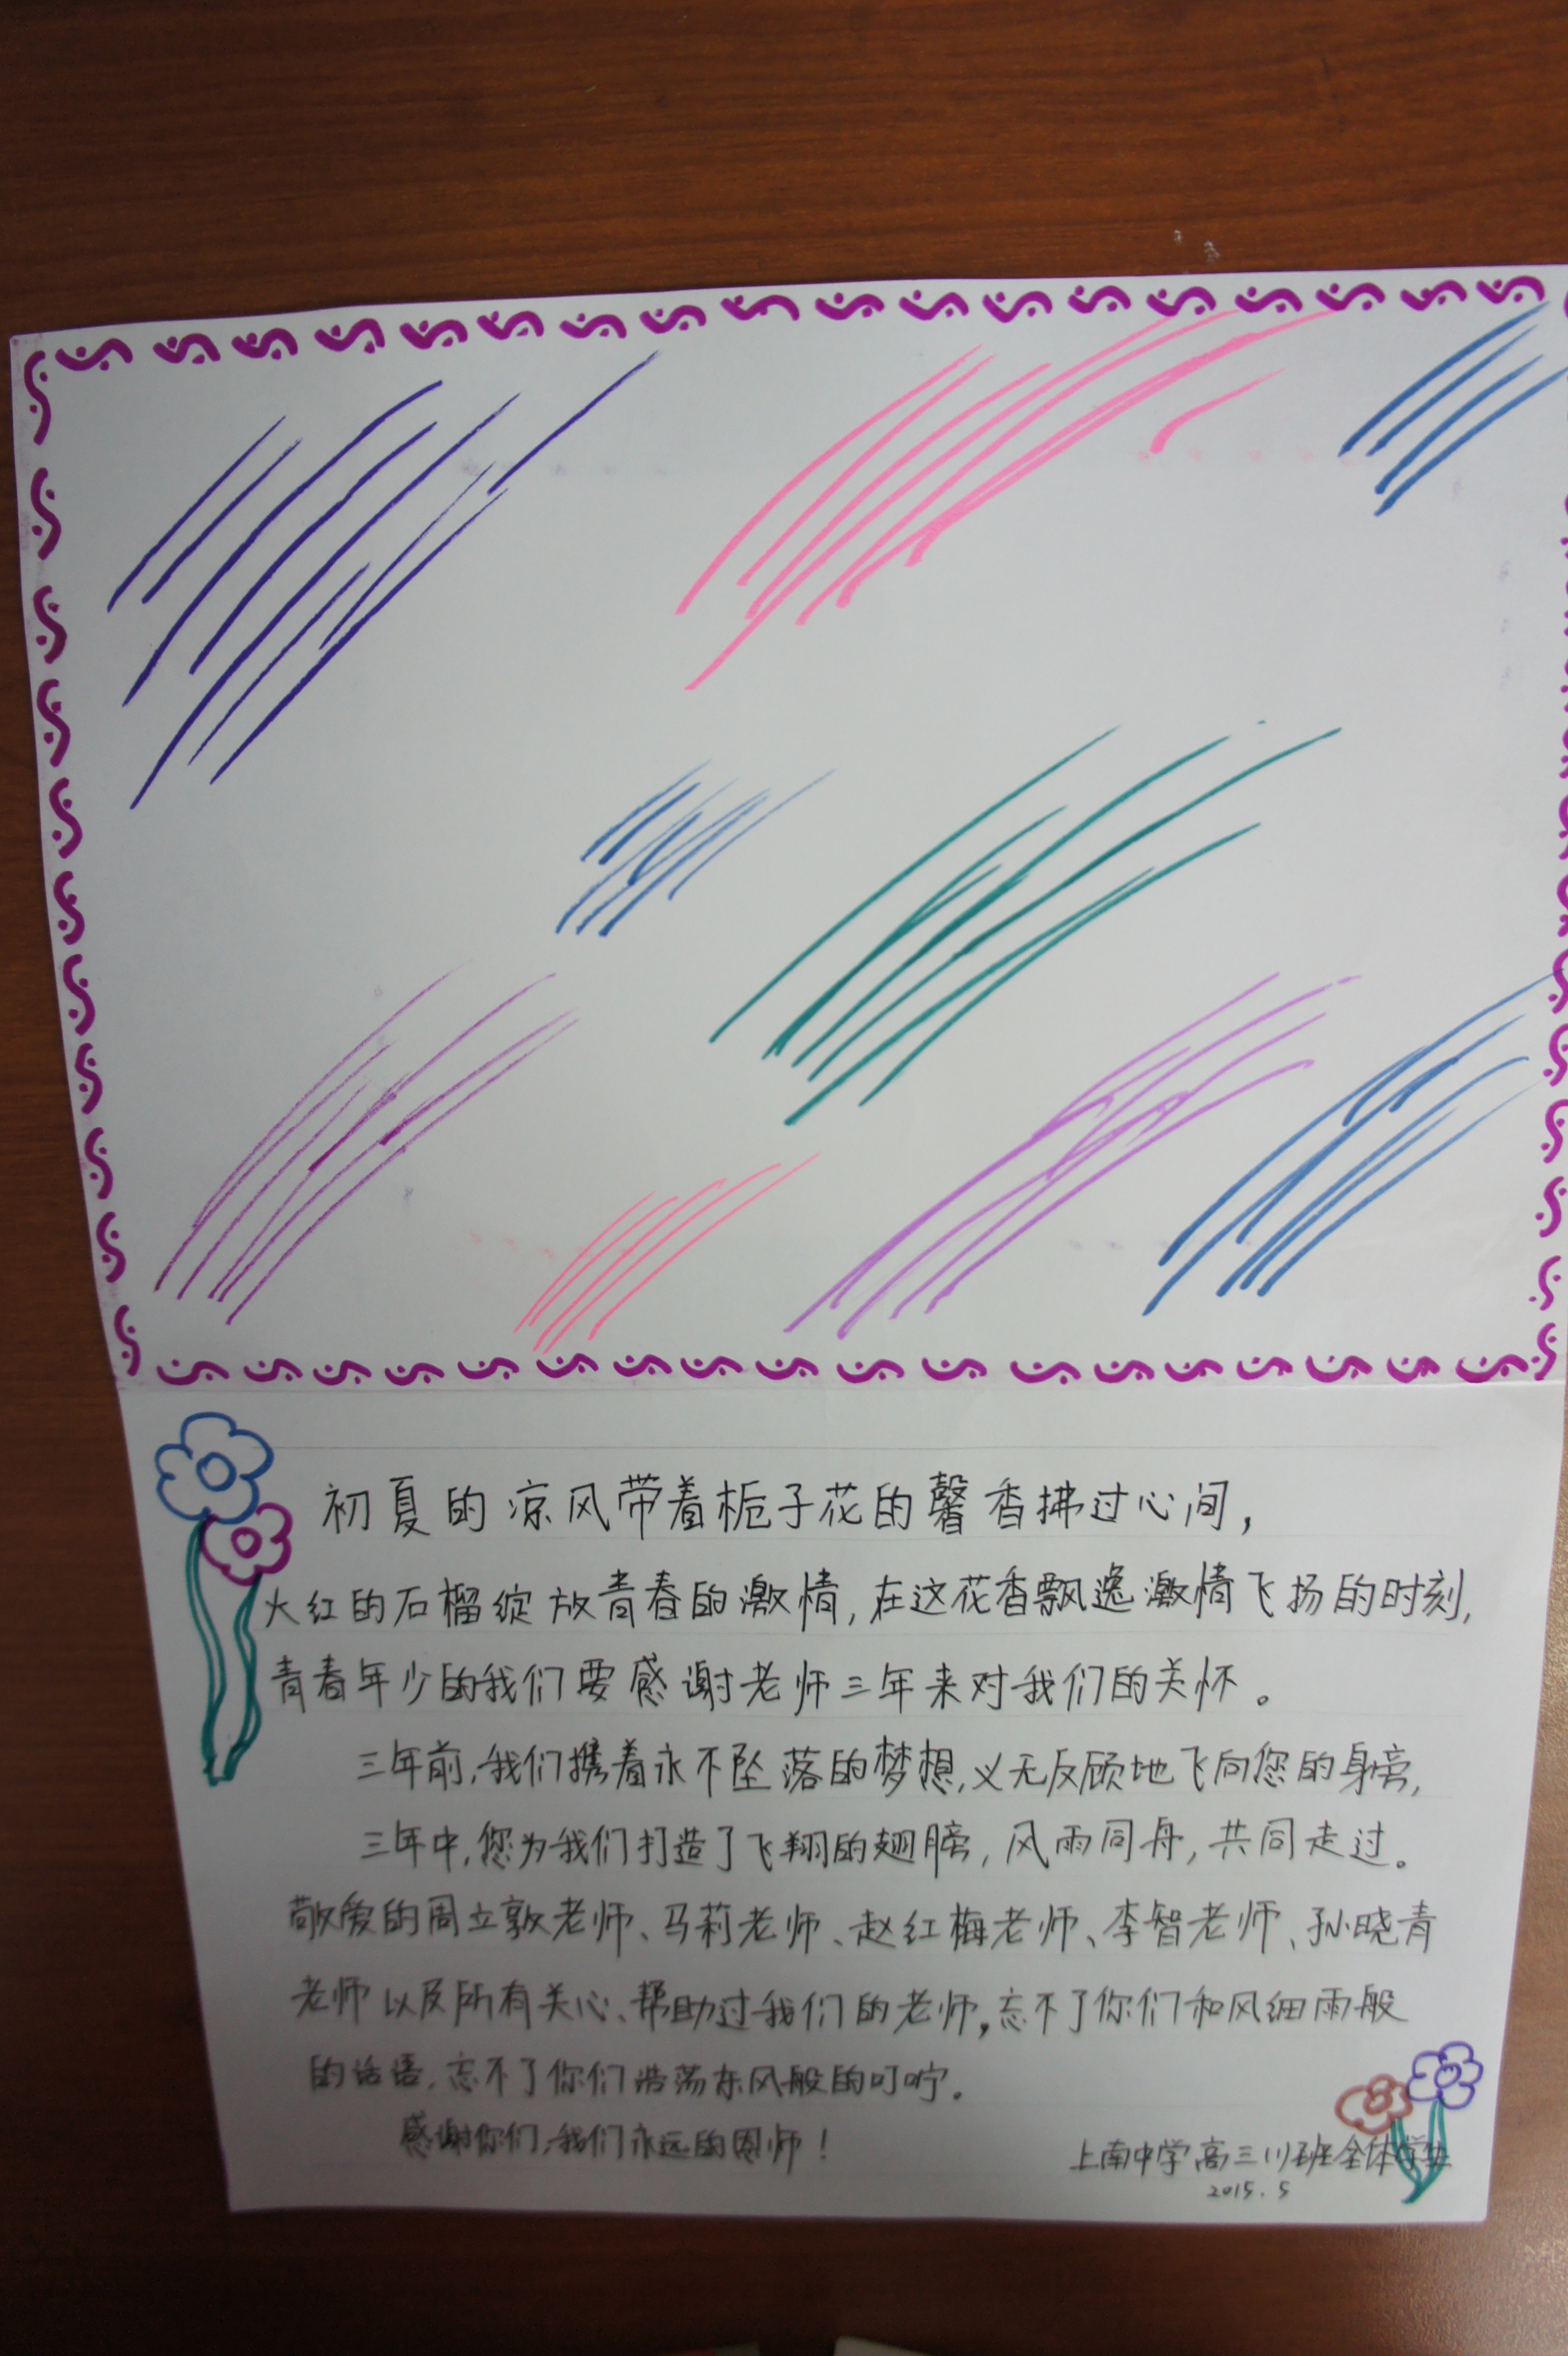 初夏的凉风带着栀子花的馨香拂过心间,
火红的石榴绽放青春的激情,在这花香飘逸激情飞扬的时刻,
青春年少的我们要感谢老师三年来对我们的关怀。
三年前,我们携着永不坠落的梦想,义无反顾地飞向您的身旁,
三年中,您为我们打造了飞翔的翅膀,风雨同舟,共同走过。
敬爱的周立敦老师、马莉老师、赵红梅老师、李智老师、孙晓青
老师以及所有关心、帮助过我们的老师,忘不了你们和风细雨般
的话语,忘不了你们浩荡东风般的叮咛。
感谢你们,我们永远的恩师!
上南中学高三(1)班全体学生
2015.5